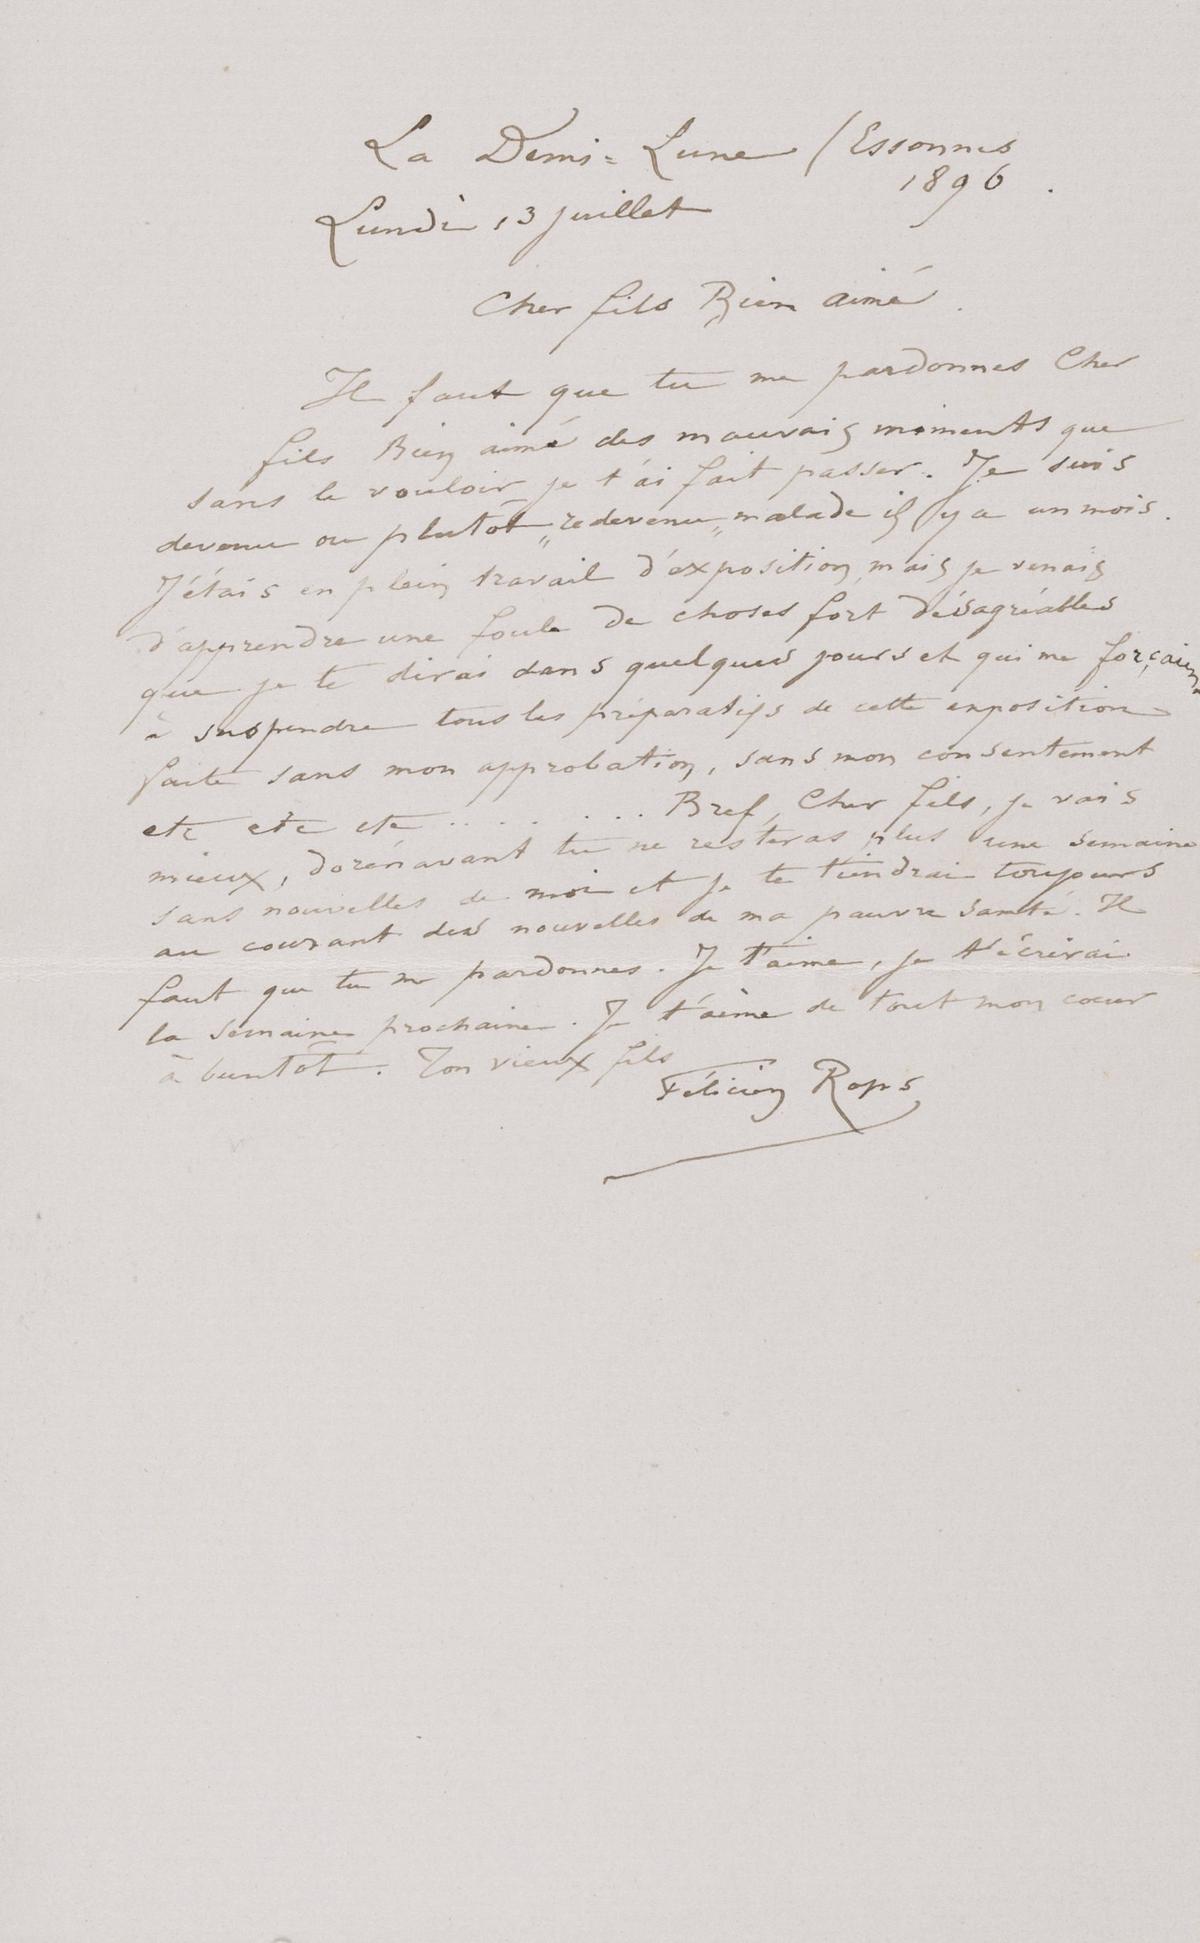 La Demi-Lune / Essonnes
1896.
Lundi 13 juillet
Cher fils Bien aimé.
Il faut que tu me pardonnes Cher
fils Bien aimé des mauvais moments que
sans le vouloir je t'ai fait passer. Je suis
devenu ou plutôt „redevenu„ malade il y a un mois.
J'étais en plein travail d'exposition, mais je venais
d'apprendre une foule de choses fort désagréables
que je te dirai dans quelques jours et qui me forçaient
à suspendre tous les préparatifs de cette exposition
faite sans mon approbation, sans mon consentement
etc etc etc ........ Bref, Cher fils, je vais
mieux, dorénavant tu ne resteras plus une semaine
sans nouvelles de moi et je te tiendrai toujours
au courant des nouvelles de ma pauvre santé. Il
faut que tu me pardonnes. Je t'aime, je t'écrirai
la semaine prochaine. Je t'aime de tout mon cœur
à bientôt. Ton vieux fils
Félicien Rops